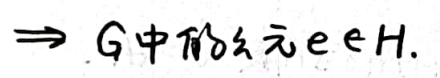 ⇒ G中的幺元e∈H.